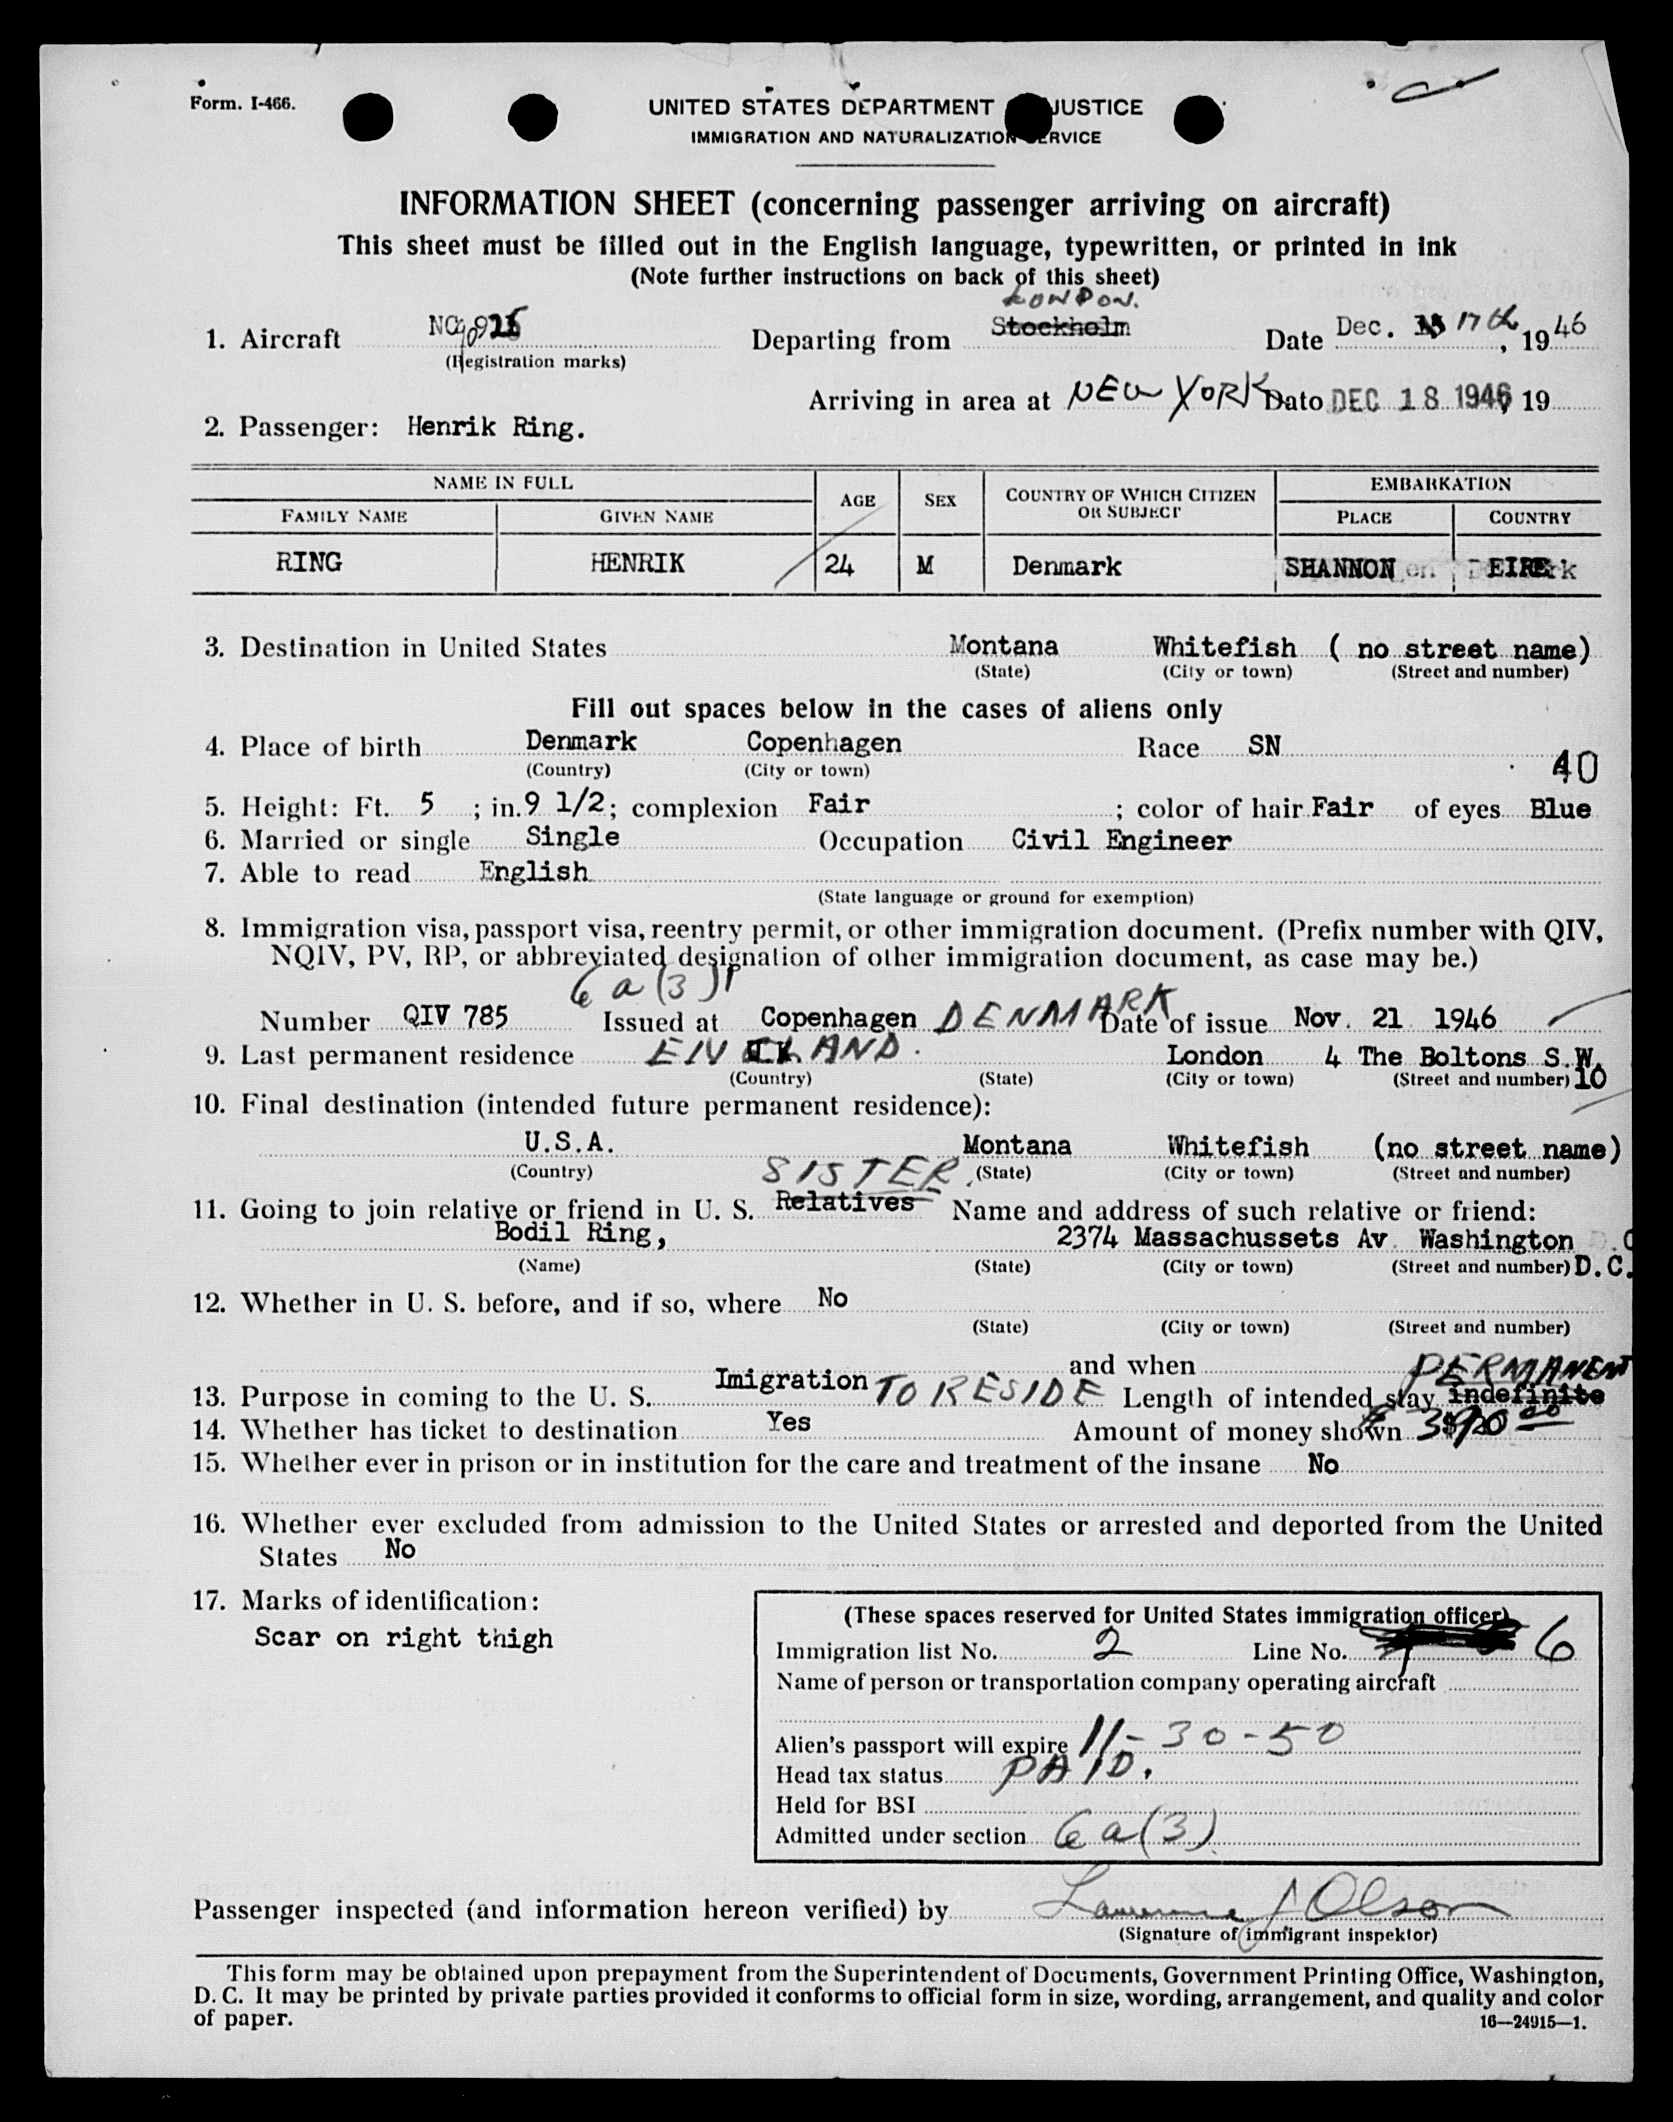 Form. I-466.
UNITED STATES DEPARTMENT JUSTICE
IMMIGRATION AND NATURALIZATION SERVICE
INFORMATION SHEET (concerning passenger arriving on aircraft)
This sheet must be filled out in the English language, typewritten, or printed in ink
(Note further instructions on back of this sheet)
LONDON.
1. Aircraft Departing from Stockholm Date Dec. 17th, 1946
(Registration marks)
Arriving in area at NEW YORK Dato DEC 18 1946, 19
2. Passenger: Henrik Ring.
NAME IN FULL AGE SEX COUNTRY OF WHICH CITIZEN OR SUBJECT EMBARKATION
FAMILY NAME GIVEN NAME PLACE COUNTRY
RING HENRIK 24 M Denmark SHANNON EIRE
3. Destination in United States Montana Whitefish ( no street name)
(State) (City or town) (Street and number)
Fill out spaces below in the cases of aliens only
4. Place of birth Denmark Copenhagen Race SN
(Country) (City or town) 40
5. Height: Ft. 5 ; in. 9 1/2; complexion Fair ; color of hair Fair of eyes Blue
6. Married or single Single Occupation Civil Engineer
7. Able to read English
(State language or ground for exemption)
8. Immigration visa, passport visa, reentry permit, or other immigration document. (Prefix number with QIV,
NQIV, PV, RP, or abbreviated designation of other immigration document, as case may be.)
6 a (3)
Number QIV 785 Issued at Copenhagen DENMARK Date of issue Nov. 21 1946
9. Last permanent residence ENGLAND. London 4 The Boltons S.W.
(Country) (State) (City or town) (Street and number) 10
10. Final destination (intended future permanent residence):
U.S.A. Montana Whitefish (no street name)
(Country) (State) (City or town) (Street and number)
SISTER
11. Going to join relative or friend in U. S. Relatives Name and address of such relative or friend:
Bodil Ring, 2374 Massachussets Av. Washington
(Name) (State) (City or town) (Street and number) D.C.
12. Whether in U. S. before, and if so, where No
(State) (City or town) (Street and number)
and when PERMANENT
13. Purpose in coming to the U. S. Imigration TO RESIDE Length of intended stay indefinite
14. Whether has ticket to destination Yes Amount of money shown
15. Whether ever in prison or in institution for the care and treatment of the insane No
16. Whether ever excluded from admission to the United States or arrested and deported from the United
States No
17. Marks of identification:
Scar on right thigh
(These spaces reserved for United States immigration officer)
Immigration list No. 2 Line No. 6
Name of person or transportation company operating aircraft
Alien's passport will expire 11-30-50
Head tax status PAID.
Held for BSI
Admitted under section 6 a (3)
Passenger inspected (and information hereon verified) by Lawrence J Olson
(Signature of immigrant inspektor)
This form may be obtained upon prepayment from the Superintendent of Documents, Government Printing Office, Washington,
D. C. It may be printed by private parties provided it conforms to official form in size, wording, arrangement, and quality and color
of paper.
16—24915—1.